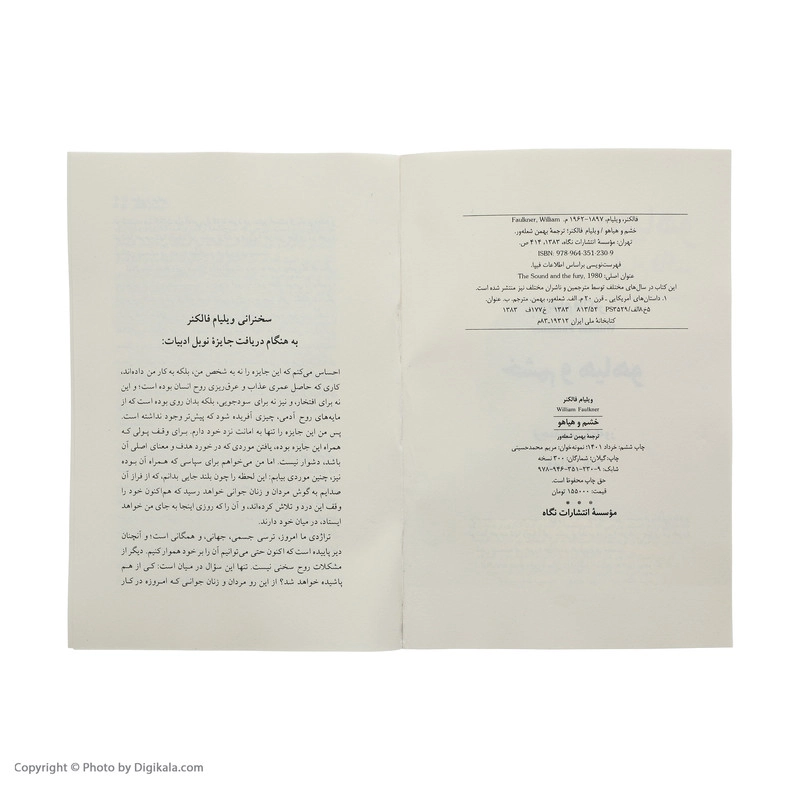 فالکنر، ویلیام، ۱۸۹۷-۱۹۶۲ م. Faulkner, William
خشم و هیاهو / ویلیام فالکنر؛ ترجمهٔ بهمن شعله‌ور.
تهران: مؤسسهٔ انتشارات نگاه، ۱۳۸۳، ۴۱۴ ص.
ISBN: 978-964-351-230-9
فهرست‌نویسی براساس اطلاعات فیپا.
عنوان اصلی: The Sound and the fury, 1980
این کتاب در سال‌های مختلف توسط مترجمین و ناشران مختلف نیز منتشر شده است.
۱. داستان‌های آمریکایی - قرن ۲۰ م. الف. شعله‌ور، بهمن، مترجم. ب. عنوان.
۵خ۸الف/PS۳۵۲۹ ۸۱۳/۵۲ ۱۳۸۳ خ۱۷۷ف ۱۳۸۳
کتابخانهٔ ملی ایران ۱۹۳۱۲-۸۳م
ویلیام فالکنر
William Faulkner
خشم و هیاهو
ترجمهٔ بهمن شعله‌ور
چاپ ششم: خرداد ۱۴۰۱؛ نمونه‌خوان: مریم محمدحسینی
چاپ: گیلان؛ شمارگان: ۳۰۰ نسخه
شابک: ۹-۲۳۰-۳۵۱-۹۴۶-۹۷۸
حق چاپ محفوظ است.
قیمت: ۱۵۵۰۰۰ تومان
* * *
مؤسسهٔ انتشارات نگاه
سخنرانی ویلیام فالکنر
به هنگام دریافت جایزهٔ نوبل ادبیات:
احساس می‌کنم که این جایزه را نه به شخص من، بلکه به کار من داده‌اند،
کاری که حاصل عمری عذاب و عرق‌ریزی روح انسان بوده است؛ و این
نه برای افتخار، و نیز نه برای سودجویی، بلکه بدان روی بوده است که از
مایه‌های روح آدمی، چیزی آفریده شود که پیش‌تر وجود نداشته است.
پس من این جایزه را تنها به امانت نزد خود دارم. برای وقف پولی که
همراه این جایزه بوده، یافتن موردی که در خورد هدف و معنای اصلی آن
باشد، دشوار نیست. اما من می‌خواهم برای سپاسی که همراه آن بوده
نیز، چنین موردی بیابم: این لحظه را چون بلند جایی بدانم، که از فراز آن
صدایم به گوش مردان و زنان جوانی خواهد رسید که هم‌اکنون خود را
وقف این درد و تلاش کرده‌اند، و آن را که روزی اینجا به جای من خواهد
ایستاد، در میان خود دارند.
تراژدی ما امروز، ترسی جسمی، جهانی، و همگانی است؛ و آنچنان
دیرپاییده است که اکنون حتی می‌توانیم آن را بر خود هموار کنیم. دیگر از
مشکلات روح سخنی نیست. تنها این سؤال در میان است: کی از هم
پاشیده خواهد شد؟ از این رو مردان و زنان جوانی که امروزه در کار
Copyright © Photo by Digikala.com